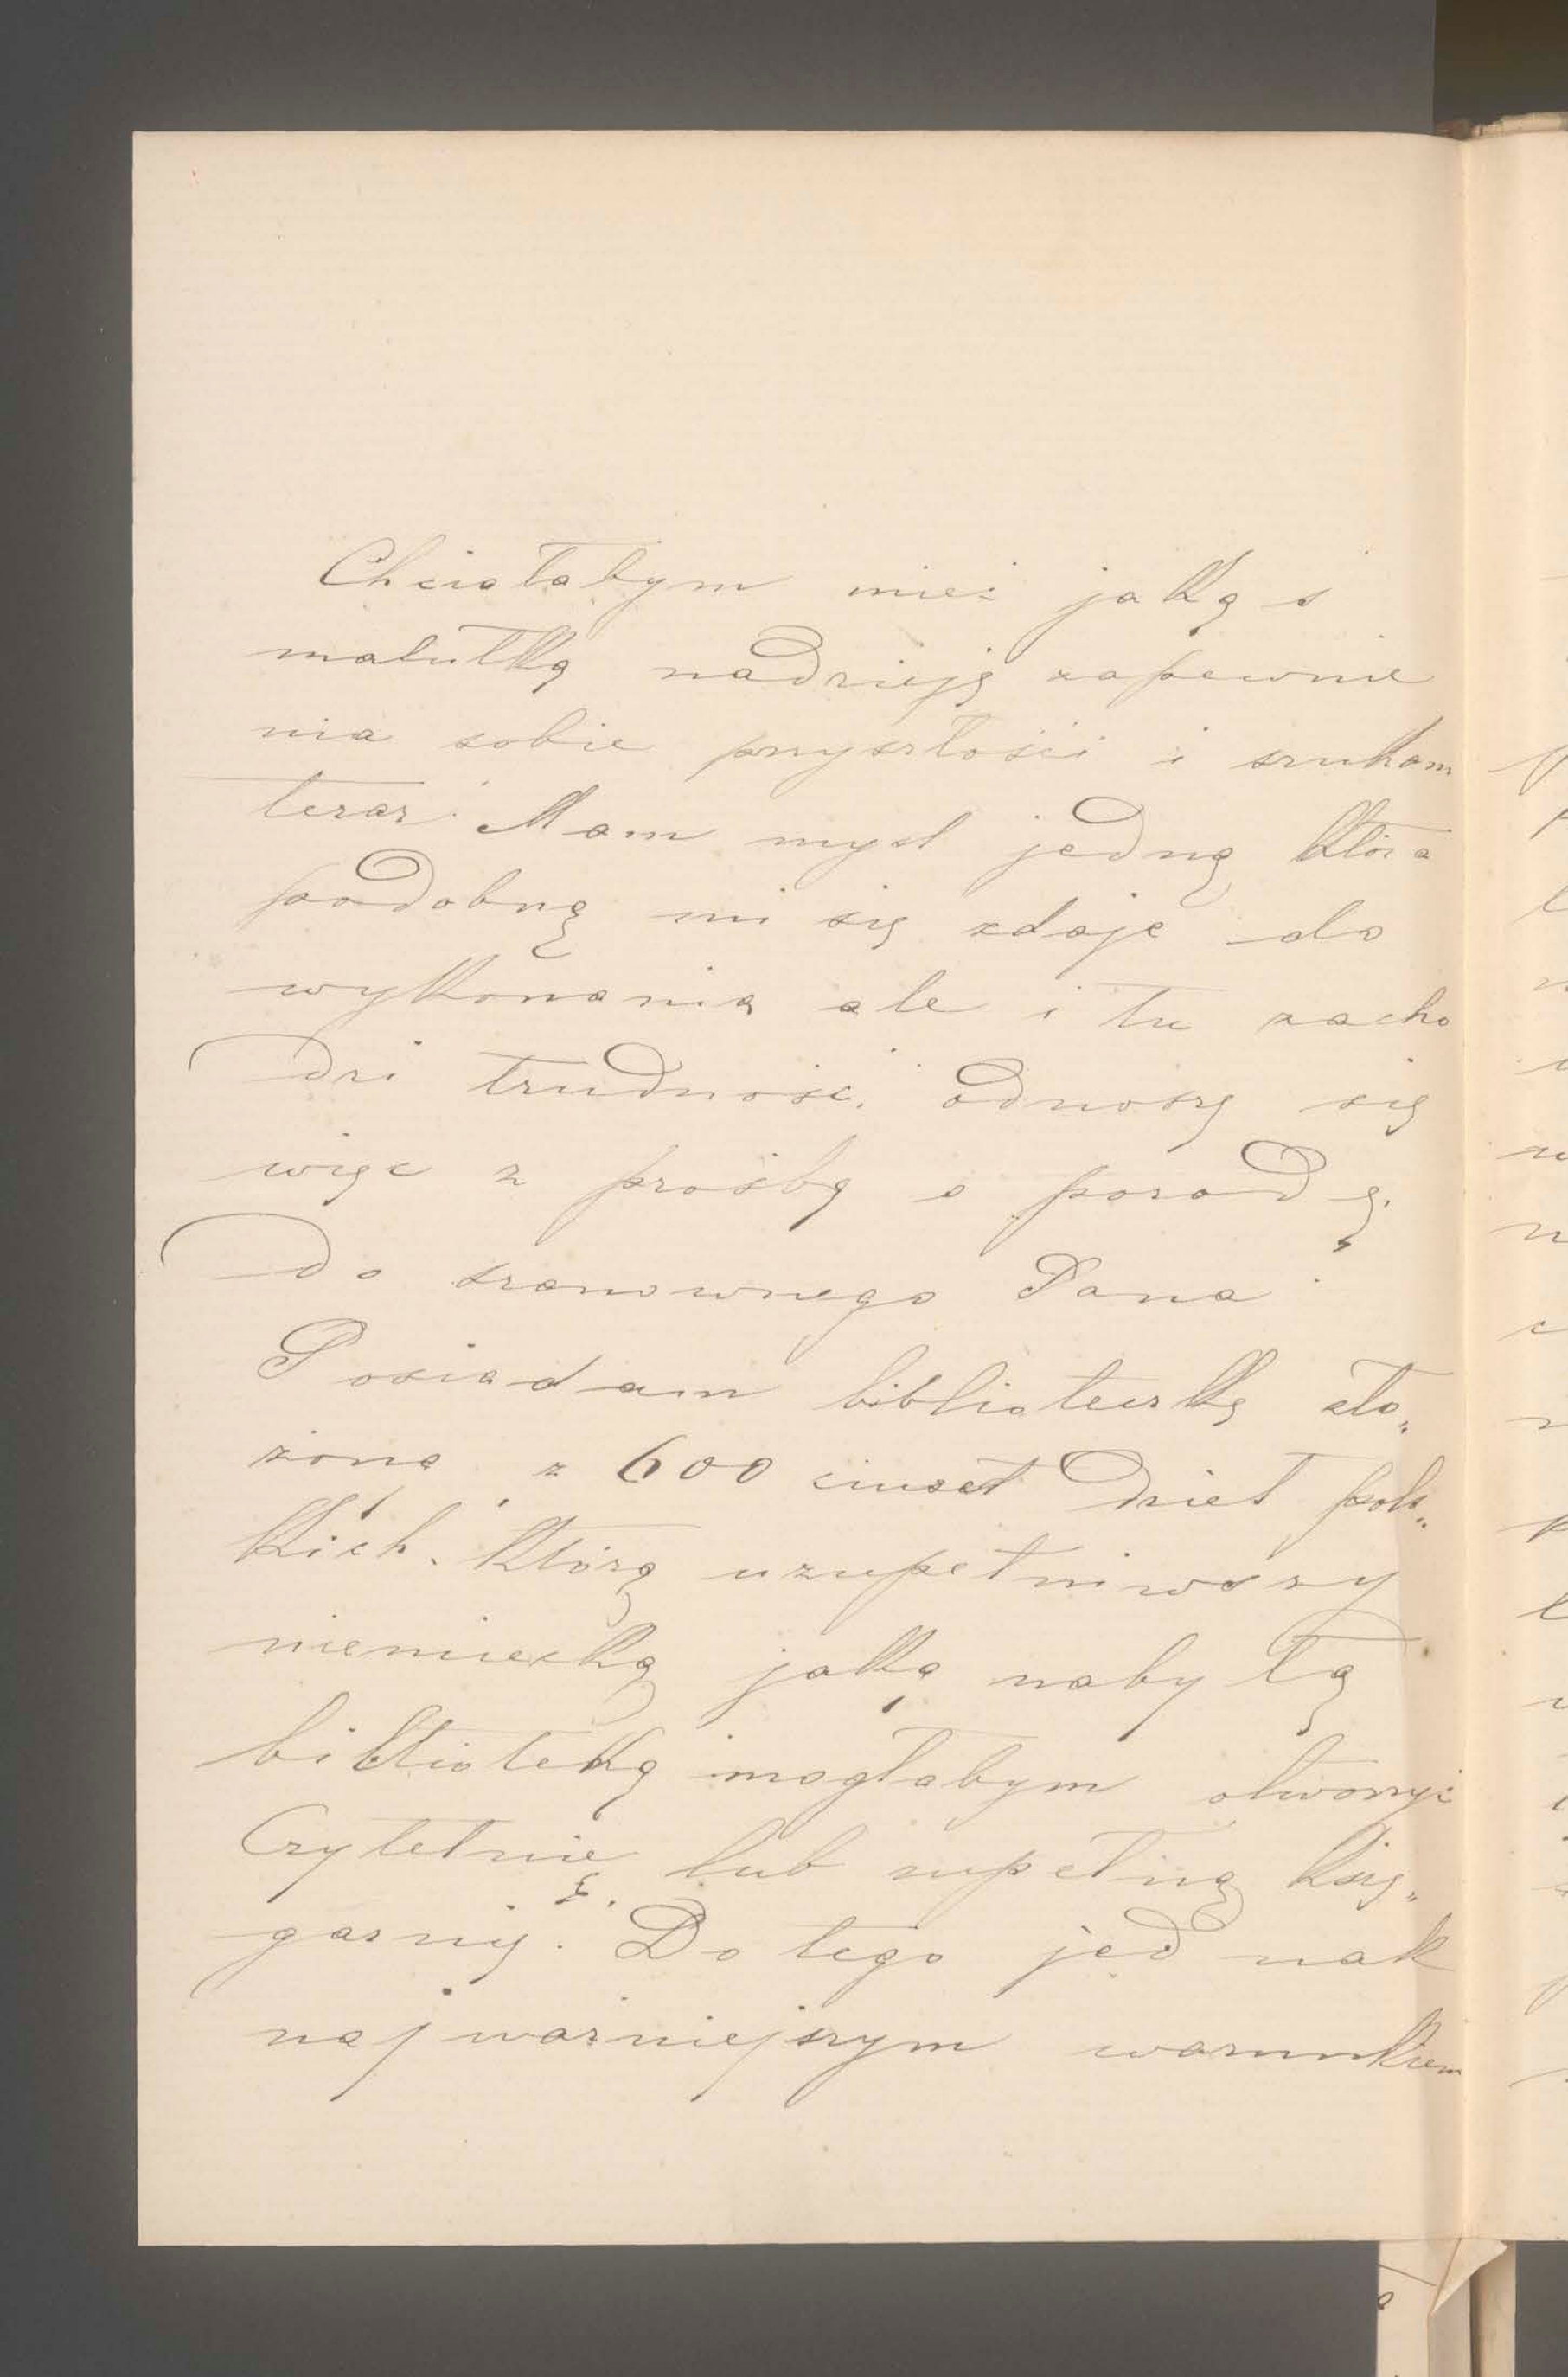 Chciałabym mieć jakąś
malutką nadzieję zapewnie
nia sobie przyszłości i szukam
teraz. Mam myśl jedną która
podobną mi się zdaje do
wykonania ale i tu zacho
dzi trudność, odnoszę się
więc z prośbą o poradę,
do szanownego Pana.
Posiadam biblioteczkę zło„
żoną z 600 ciuset dzieł pols„
kich. Którą uzupełniwszy
niemiecką jaką nabytą
biblioteką mogłabym otworzyć
Czytelnię. lub zupełną księ„
garnię. Do tego jednak
najważniejszym warunkiem